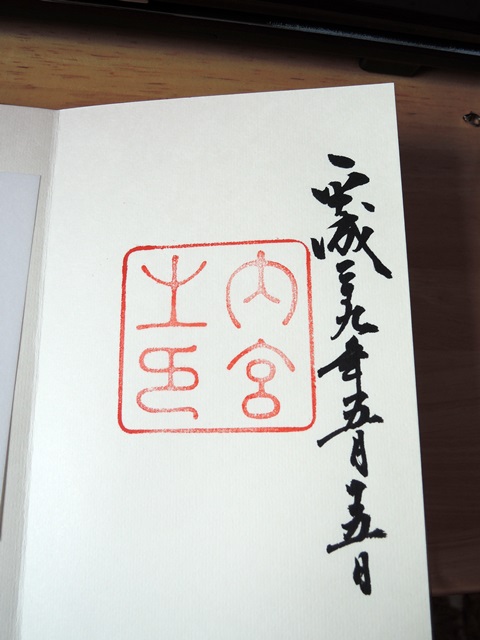 平成二十九年五月十五日
内宮
之印